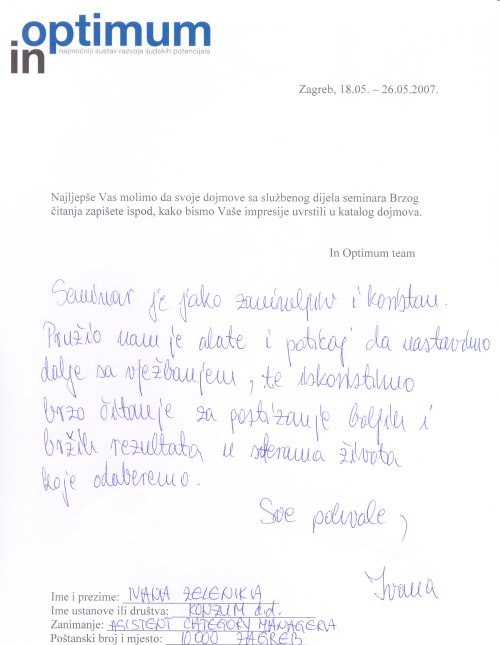 in optimum
najmoćniji sustav razvoja ljudskih potencijala
Zagreb, 18.05. – 26.05.2007.
Najljepše Vas molimo da svoje dojmove sa službenog dijela seminara Brzog
čitanja zapišete ispod, kako bismo Vaše impresije uvrstili u katalog dojmova.
In Optimum team
Seminar je jako zanimljiv i koristan.
Pružio nam je alate i poticaj da nastavimo
dalje sa vježbanjem, te iskoristimo
brzo čitanje za postizanje boljih i
bržih rezultata u sferama života
koje odaberemo.
Sve pohvale,
Ivana
Ime i prezime: IVANA ZELENIKA
Ime ustanove ili društva: KONZUM d.d.
Zanimanje: ASISTENT CATEGORY MANAGERA
Poštanski broj i mjesto: 10000 ZAGREB